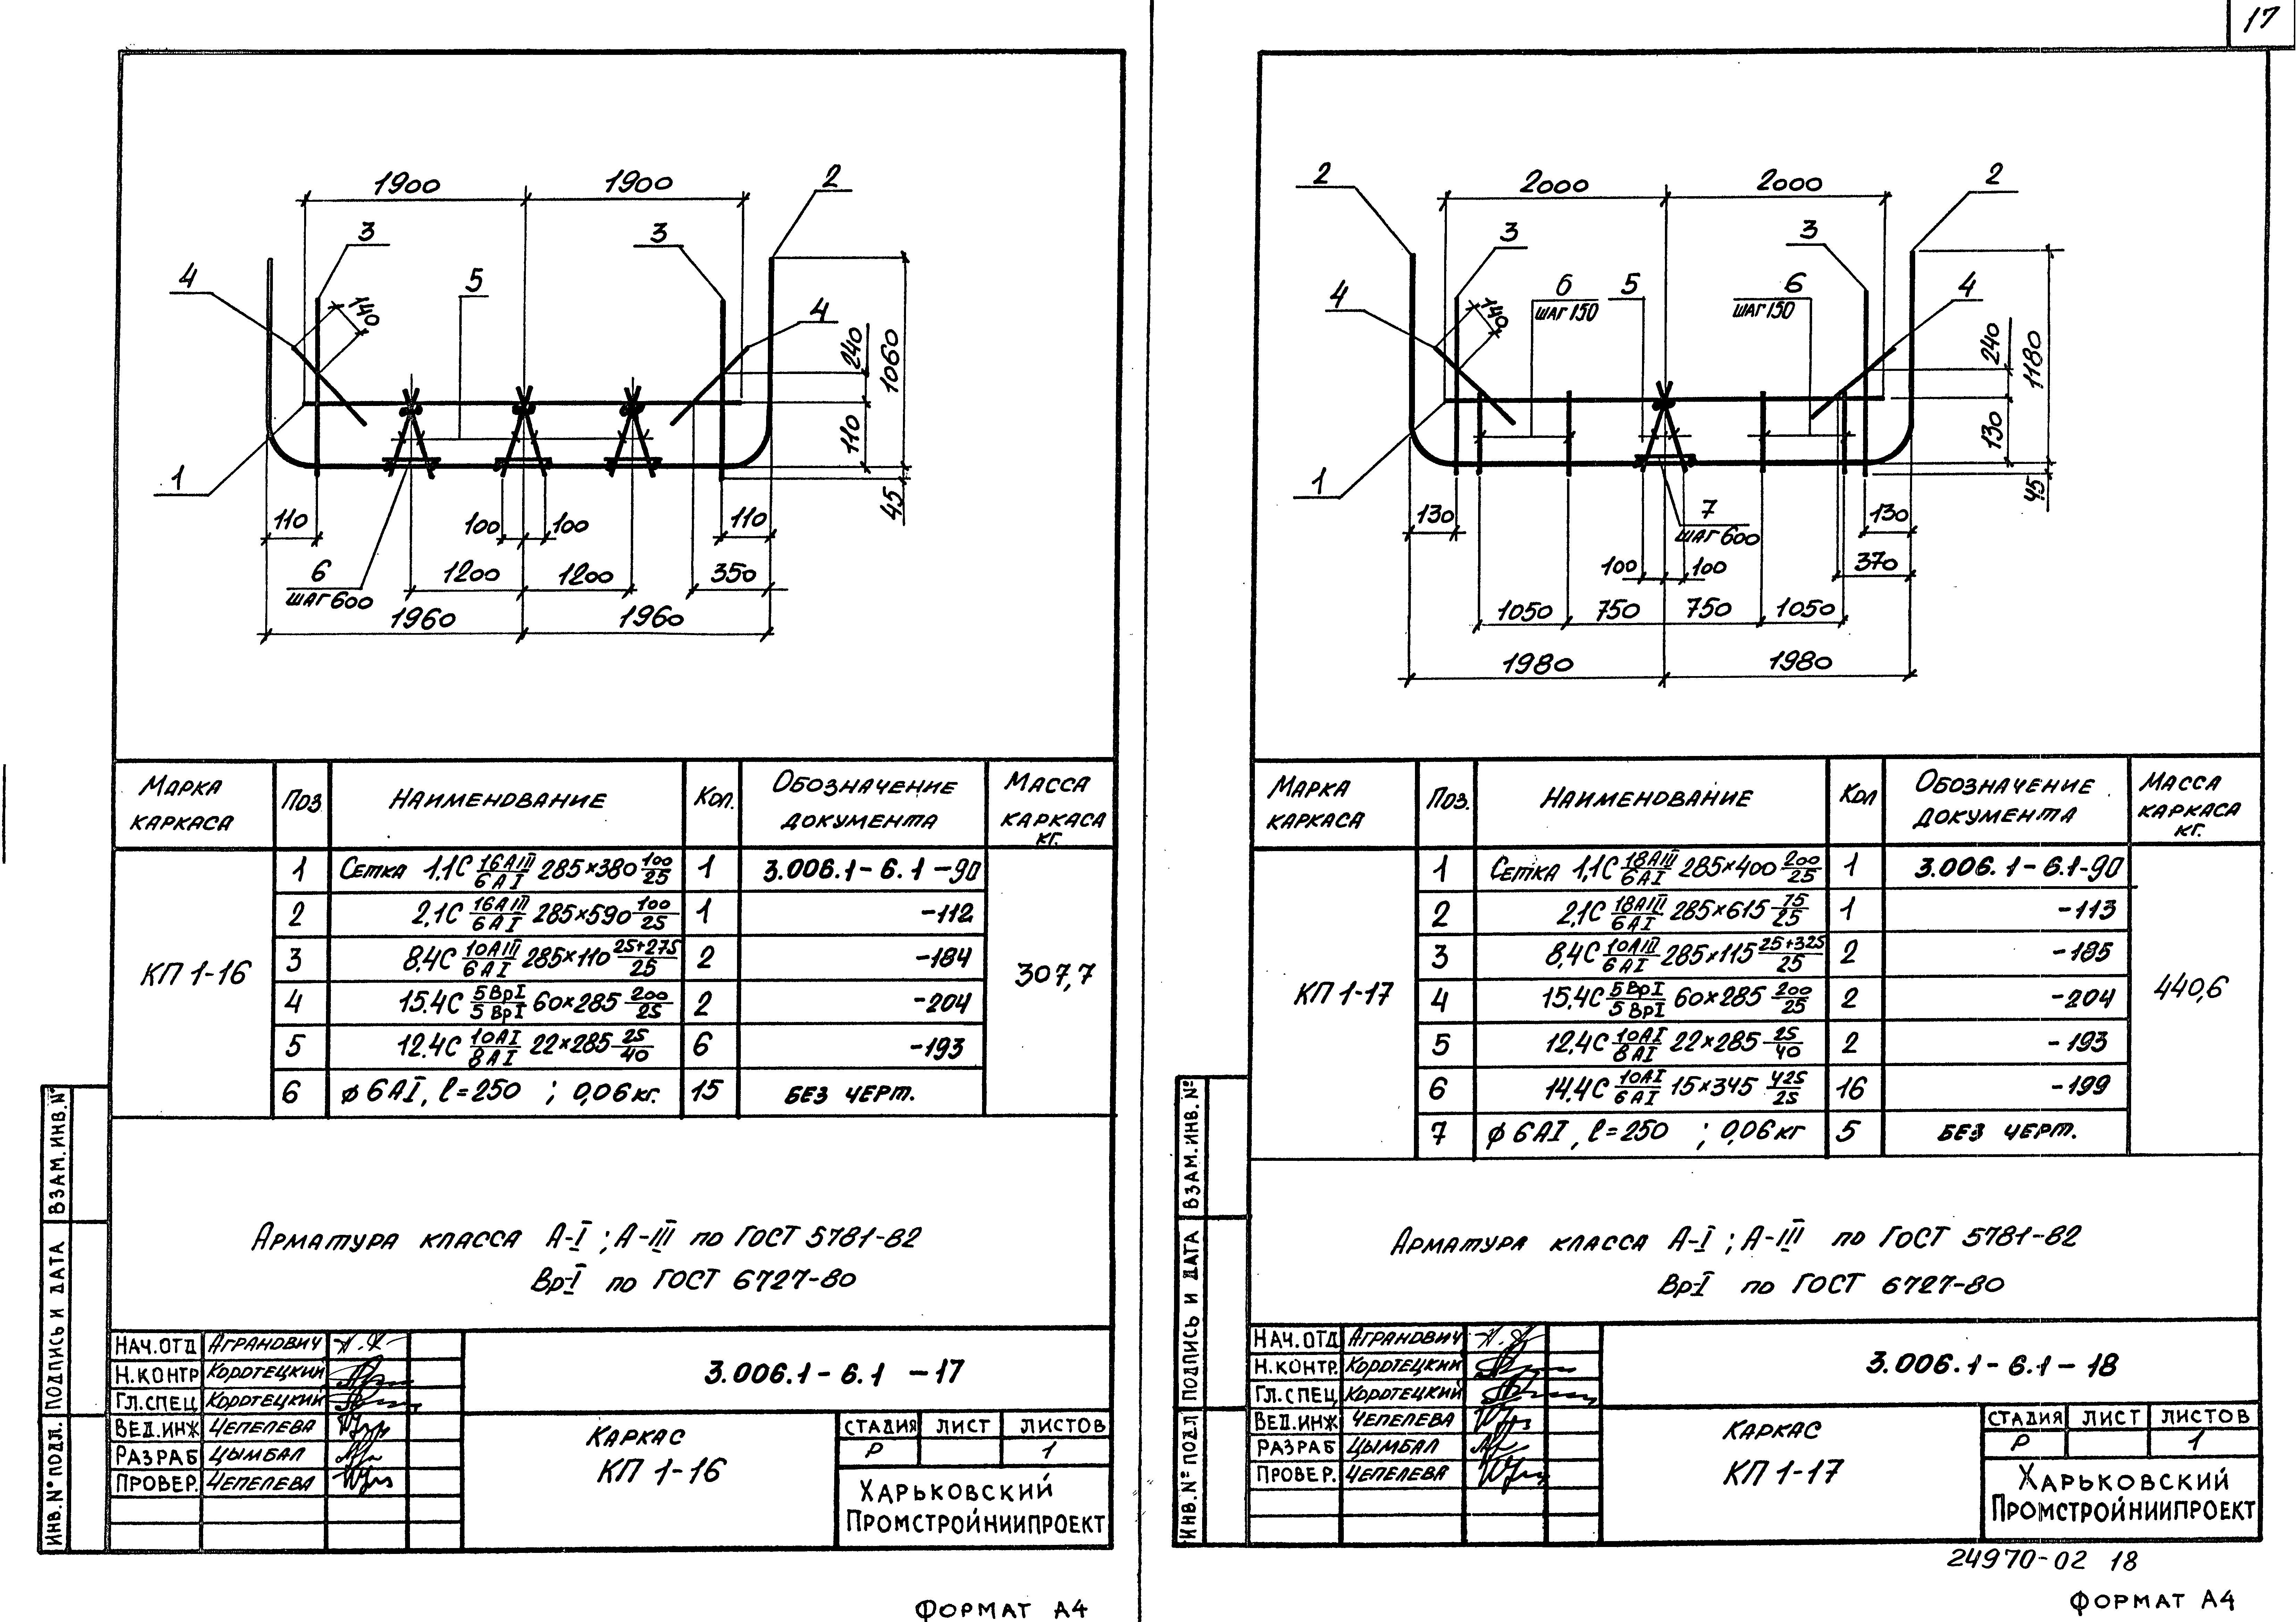 17
1900 1900
2
3 3
4 5 4
140
240
1060
110
45
1
110 100 100 110
6
ШАГ 600
1200 1200 350
1960 1960
МАРКА КАРКАСА ПОЗ НАИМЕНОВАНИЕ КОЛ. ОБОЗНАЧЕНИЕ ДОКУМЕНТА МАССА КАРКАСА КГ.
КП 1-16
1 СЕТКА 1,1С 16АIII/6АI 285×380 100/25 1 3.006.1-6.1-90
2 2,1С 16АIII/6АI 285×590 100/25 1 -112
3 8,4С 10АIII/6АI 285×110 25+275/25 2 -184
4 15.4С 5ВрI/5ВрI 60×285 200/25 2 -204
5 12.4С 10АI/8АI 22×285 25/40 6 -193
6 ϕ 6АI, ℓ=250 ; 0,06 кг. 15 БЕЗ ЧЕРТ.
307,7
АРМАТУРА КЛАССА А-I ; А-III ПО ГОСТ 5781-82
Вр-I ПО ГОСТ 6727-80
ВЗАМ.ИНВ.№
ПОДПИСЬ И ДАТА
ИНВ.№ ПОДЛ.
НАЧ.ОТД АГРАНОВИЧ
Н.КОНТР КОРОТЕЦКИЙ
ГЛ.СПЕЦ КОРОТЕЦКИЙ
ВЕД.ИНЖ ЧЕПЕЛЕВА
РАЗРАБ ЦЫМБАЛ
ПРОВЕР. ЧЕПЕЛЕВА
3.006.1-6.1 -17
КАРКАС
КП 1-16
СТАДИЯ ЛИСТ ЛИСТОВ
Р 1
ХАРЬКОВСКИЙ
ПРОМСТРОЙНИИПРОЕКТ
ФОРМАТ А4
2000 2000
2 2
3 3
4 6 5 6 4
ШАГ 150 ШАГ 150
140
240
1180
130
45
1
130 7 130
ШАГ 600
100 100 370
1050 750 750 1050
1980 1980
МАРКА КАРКАСА ПОЗ. НАИМЕНОВАНИЕ КОЛ ОБОЗНАЧЕНИЕ ДОКУМЕНТА МАССА КАРКАСА КГ.
КП 1-17
1 СЕТКА 1,1С 18АIII/6АI 285×400 200/25 1 3.006.1-6.1-90
2 2,1С 18АIII/6АI 285×615 75/25 1 -113
3 8,4С 10АIII/6АI 285×115 25+325/25 2 -185
4 15.4С 5ВрI/5ВрI 60×285 200/25 2 -204
5 12.4С 10АI/8АI 22×285 25/40 2 -193
6 14.4С 10АI/6АI 15×345 425/25 16 -199
7 ϕ 6АI, ℓ=250 ; 0,06 кг 5 БЕЗ ЧЕРТ.
440,6
АРМАТУРА КЛАССА А-I ; А-III ПО ГОСТ 5781-82
Вр-I ПО ГОСТ 6727-80
ВЗАМ.ИНВ.№
ПОДПИСЬ И ДАТА
ИНВ.№ ПОДЛ
НАЧ.ОТД АГРАНОВИЧ
Н.КОНТР. КОРОТЕЦКИЙ
ГЛ.СПЕЦ КОРОТЕЦКИЙ
ВЕД.ИНЖ ЧЕПЕЛЕВА
РАЗРАБ ЦЫМБАЛ
ПРОВЕР. ЧЕПЕЛЕВА
3.006.1-6.1-18
КАРКАС
КП 1-17
СТАДИЯ ЛИСТ ЛИСТОВ
Р 1
ХАРЬКОВСКИЙ
ПРОМСТРОЙНИИПРОЕКТ
24970-02 18
ФОРМАТ А4